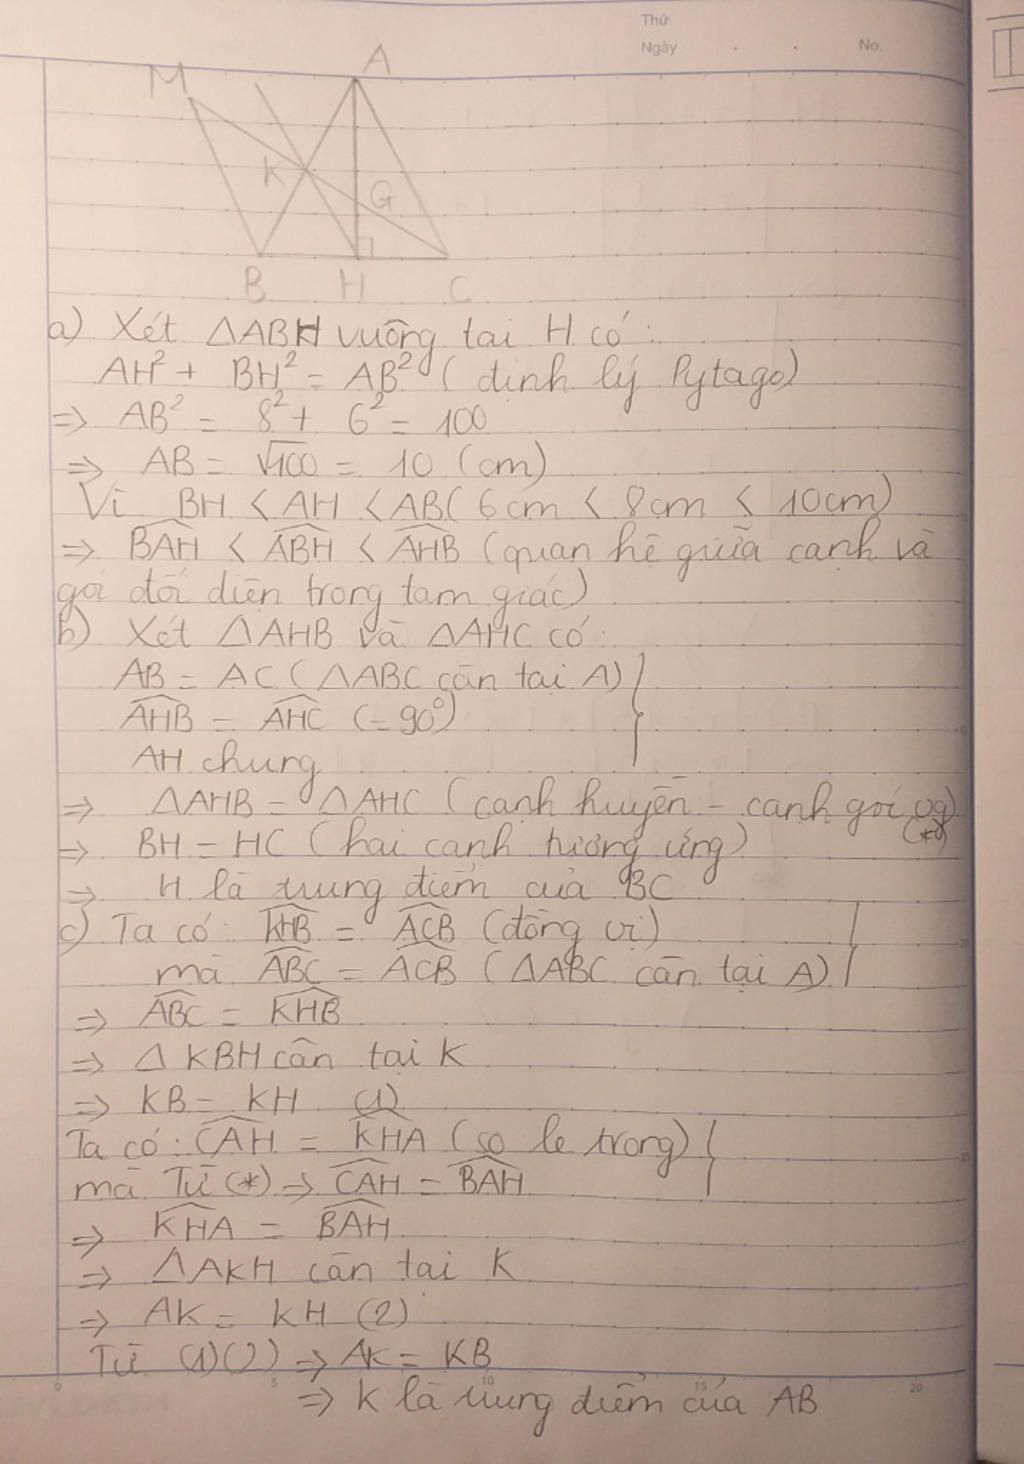 Thứ
Ngày . . No.
M A
K G
B H C
a) Xét ΔABH vuông tại H có:
AH² + BH² = AB² (định lý Pytago)
=> AB² = 8² + 6² = 100
=> AB = √100 = 10 (cm)
Vì BH < AH < AB (6cm < 8cm < 10cm)
=> \widehat{BAH} < \widehat{ABH} < \widehat{AHB} (quan hệ giữa cạnh và
góc đối diện trong tam giác)
b) Xét ΔAHB và ΔAHC có:
AB = AC (ΔABC cân tại A)
\widehat{AHB} = \widehat{AHC} (= 90°)
AH chung
=> ΔAHB = ΔAHC (cạnh huyền - cạnh góc vg)
(*)
=> BH = HC (hai cạnh tương ứng)
=> H là trung điểm của BC
c) Ta có: \widehat{KHB} = \widehat{ACB} (đồng vị)
mà \widehat{ABC} = \widehat{ACB} (ΔABC cân tại A)
=> \widehat{ABC} = \widehat{KHB}
=> Δ KBH cân tại K
=> KB = KH (1)
Ta có: \widehat{CAH} = \widehat{KHA} (so le trong)
mà Từ (*) => \widehat{CAH} = \widehat{BAH}
=> \widehat{KHA} = \widehat{BAH}
=> ΔAKH cân tại K
=> AK = KH (2)
Từ (1)(2) => AK = KB
0 5 10 15 20
=> K là trung điểm của AB